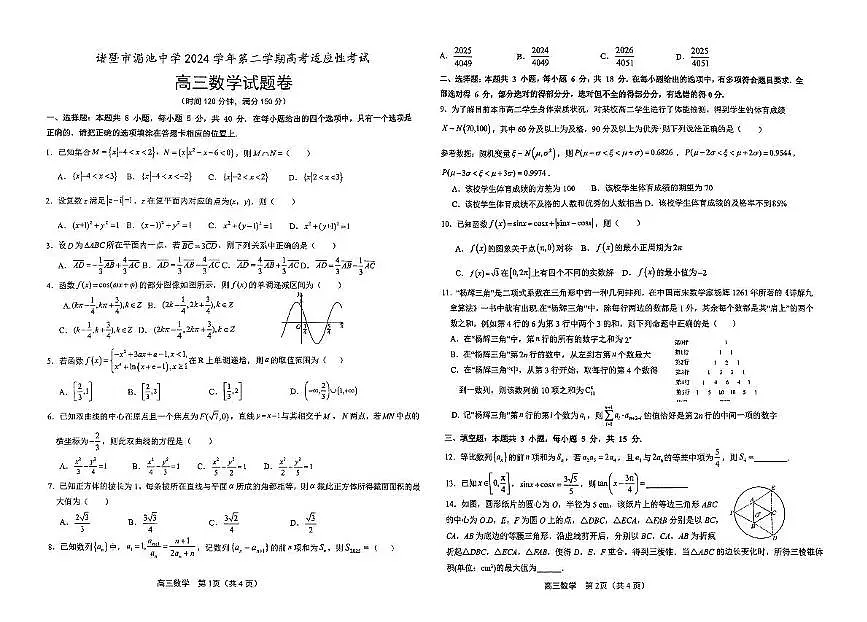 诸暨市湄池中学 2024 学年第二学期高考适应性考试
高三数学试题卷
(时间 120 分钟，满分 150 分)
一、选择题：本题共 8 小题，每小题 5 分，共 40 分．在每小题给出的四个选项中，只有一个选项是
正确的．请把正确的选项填涂在答题卡相应的位置上．
1．已知集合 M={x|-4<x<2}，N={x|x²-x-6<0}，则 M∩N=（ ）
A．{x|-4<x<3} B．{x|-4<x<-2} C．{x|-2<x<2} D．{x|2<x<3}
2．设复数 z 满足|z-i|=1，z 在复平面内对应的点为(x，y)，则（ ）
A．(x+1)²+y²=1 B．(x-1)²+y²=1 C．x²+(y-1)²=1 D．x²+(y+1)²=1
3．设 D 为△ABC 所在平面内一点，若 BC=3CD，则下列关系中正确的是（ ）
A．AD=-1/3AB+4/3AC B．AD=1/3AB-4/3AC C．AD=4/3AB+1/3AC D．AD=4/3AB-1/3AC
4．函数 f(x)=cos(ωx+φ) 的部分图像如图所示，则 f(x) 的单调递减区间为（ ）
A.(kπ-1/4,kπ+3/4),k∈Z B．(2k-1/4,2k+3/4),k∈Z
C．(k-1/4,k+3/4),k∈Z D．(2kπ-1/4,2kπ+3/4),k∈Z
5．若函数 f(x)={-x²+3ax+a-1,x<1, 在 R 上单调递增，则 a 的取值范围为（ ）
6．已知双曲线的中心在原点且一个焦点为 F(√7,0)，直线 y=x-1 与其相交于 M，N 两点，若 MN 中点的
横坐标为 -2/3，则此双曲线的方程是（ ）
A．x²/3-y²/4=1 B．x²/4-y²/3=1 C．x²/5-y²/2=1 D．x²/2-y²/5=1
7．已知正方体的棱长为 1，每条棱所在直线与平面 α 所成的角都相等，则 α 截此正方体所得截面面积的最
大值为（ ）
A．2√3/3 B．3√3/4 C．3√2/4 D．√3/2
8．已知数列{aₙ}中，a₁=1,aₙ₊₁/aₙ=n+1/2aₙ+n，记数列{aₙ-aₙ₊₁}的前 n 项和为 Sₙ，则 S₂₀₂₅=（ ）
高三数学 第 1页（共 4 页）
A．2025/4049 B．2024/4049 C．2026/4051 D．2025/4051
二、选择题：本题共 3 小题，每小题 6 分，共 18 分．在每小题给出的选项中，有多项符合题目要求．全
部选对得 6 分，部分选对的得部分分，选对但不全的得部分分，有选错的得 0 分．
9．为了解目前本市高二学生身体素质状况，对某校高二学生进行了体能检测，得到学生的体育成绩
X~N(70,100)，其中 60 分及以上为及格，90 分及以上为优秀．则下列说法正确的是（ ）
参考数据：随机变量 ξ~N(μ,σ²)，则 P(μ-σ<ξ<μ+σ)=0.6826，P(μ-2σ<ξ<μ+2σ)=0.9544，
P(μ-3σ<ξ<μ+3σ)=0.9974．
A．该校学生体育成绩的方差为 100 B．该校学生体育成绩的期望为 70
C．该校学生体育成绩不及格的人数和优秀的人数相当 D．该校学生体育成绩的及格率不到85%
10．已知函数 f(x)=sinx+cosx+|sinx-cosx|，则（ ）
A．f(x) 的图象关于点(π,0)对称 B．f(x) 的最小正周期为2π
C．f(x)=√3 在[0,2π]上有四个不同的实数解 D．f(x) 的最小值为-2
11．“杨辉三角”是二项式系数在三角形中的一种几何排列，在中国南宋数学家杨辉 1261 年所著的《详解九
章算法》一书中就有出现.在“杨辉三角”中，除每行两边的数都是 1 外，其余每个数都是其“肩上”的两个
数之和，例如第 4 行的 6 为第 3 行中两个 3 的和．则下列命题中正确的是（ ）
A．在“杨辉三角”中，第 n 行的所有的数字之和为 2ⁿ
C．在“杨辉三角”中，从第 3 行开始，取每行的第 4 个数得
到一数列，则该数列前 10 项之和为
第0行 1
第1行 1 1
第2行 1 2 1
第3行 1 3 3 1
第4行 1 4 6 4 1
第5行 1 5 10 10 5 1
D．记“杨辉三角”第 n 行的第 i 个数为 aᵢ，则 的值恰好是第 2n 行的中间一项的数字
三、填空题：本题共 3 小题，每小题 5 分，共 15 分．
12．等比数列{aₙ}的前 n 项和为 Sₙ，若 a₂a₃=2a₁，且 a₄ 与 2a₇ 的等差中项为 5/4，则 S₄=________．
13．已知 x∈[0,π/4]，sinx+cosx=3√5/5，则 tan(x-3π/4)=________．
14．如图，圆形纸片的圆心为 O，半径为 5 cm，该纸片上的等边三角形 ABC
的中心为 O.D，E，F 为圆 O 上的点，△DBC，△ECA，△FAB 分别是以 BC，
CA，AB 为底边的等腰三角形．沿虚线剪开后，分别以 BC，CA，AB 为折痕
折起△DBC，△ECA，△FAB，使得 D、E、F 重合，得到三棱锥．当△ABC 的边长变化时，所得三棱锥体
积(单位：cm³)的最大值为______．
高三数学 第 2页（共 4 页）